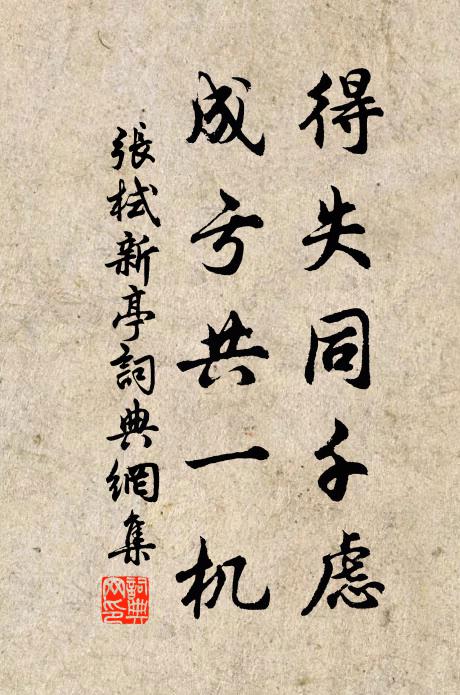 得失同千虑
成亏共一机
張栻新亭詞典網集
詞典
网印